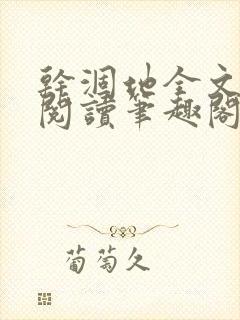 幹涸地全文
閱讀筆趣閣
葡萄久